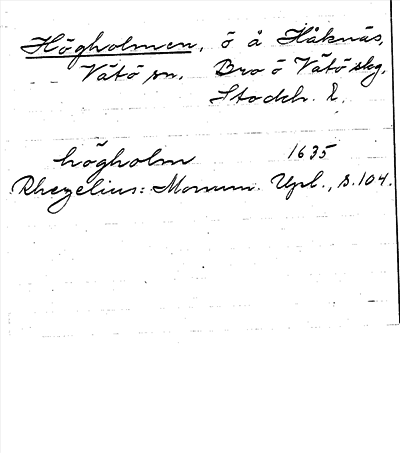 Högholmen, ö å Håknäs,
Vätö sn. Bro o Vätö skg.
Stockh. l.
högholm 1635
Rhezelius: Monum. Upl., s. 104.